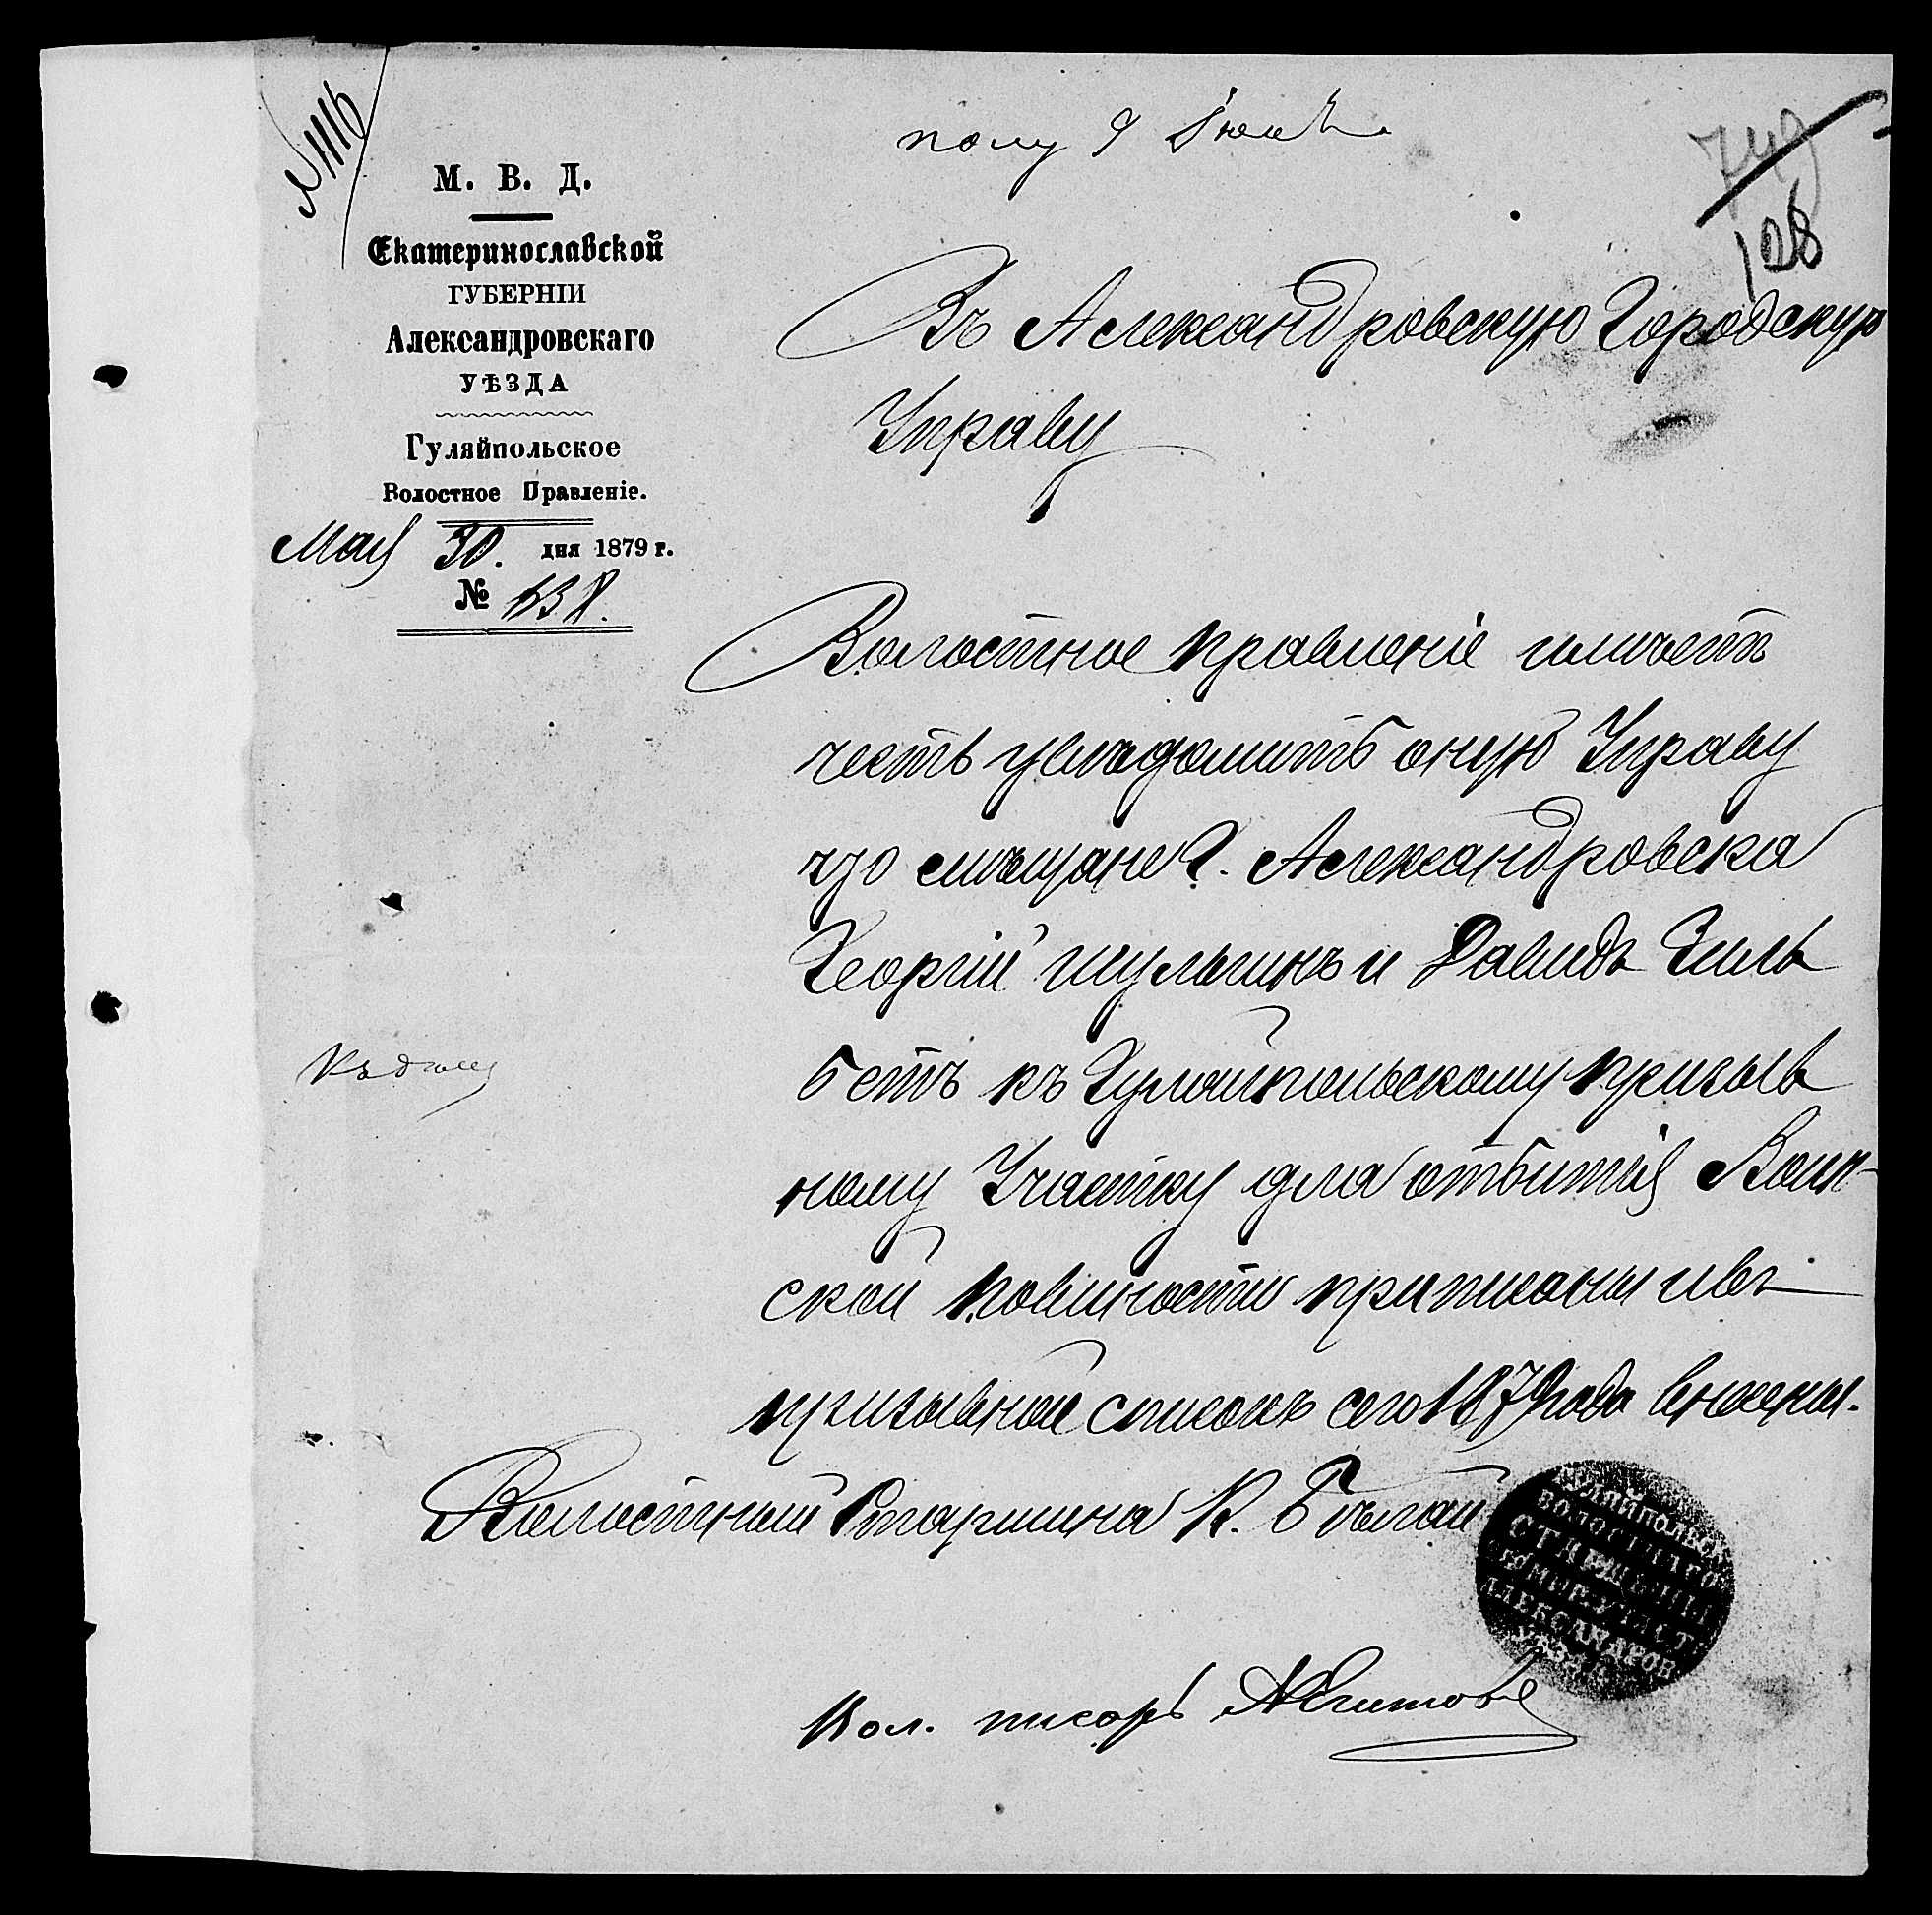 № 1116
полу 9 Іюня
749
128
М. В. Д.
Екатеринославской
ГУБЕРНІИ
Александровскаго
УѢЗДА
Гуляйпольское
Волостное Правленіе.
Мая 30. дня 1879 г.
№ 638.
Въ Александровскую Городскую
Управу
Волостное правленіе имѣетъ
честь увѣдомить оную Управу
что мѣщане г. Александровска
Георгій Шульгинъ и Давидъ Зиль
бетъ къ Гуляйпольскому призыв
ному Участку для отбитія Воин-
ской повиности приписаны и въ
призывной списокъ сего 1879 года внесены.
Къ дѣлу
Волостный Старшина К. Бѣлай
ГУЛЯЙПОЛЬСК
ВОЛОСТНАГО
СТАРШИНЫ
АЛЕКСАНДРОВ
Вол. писарь